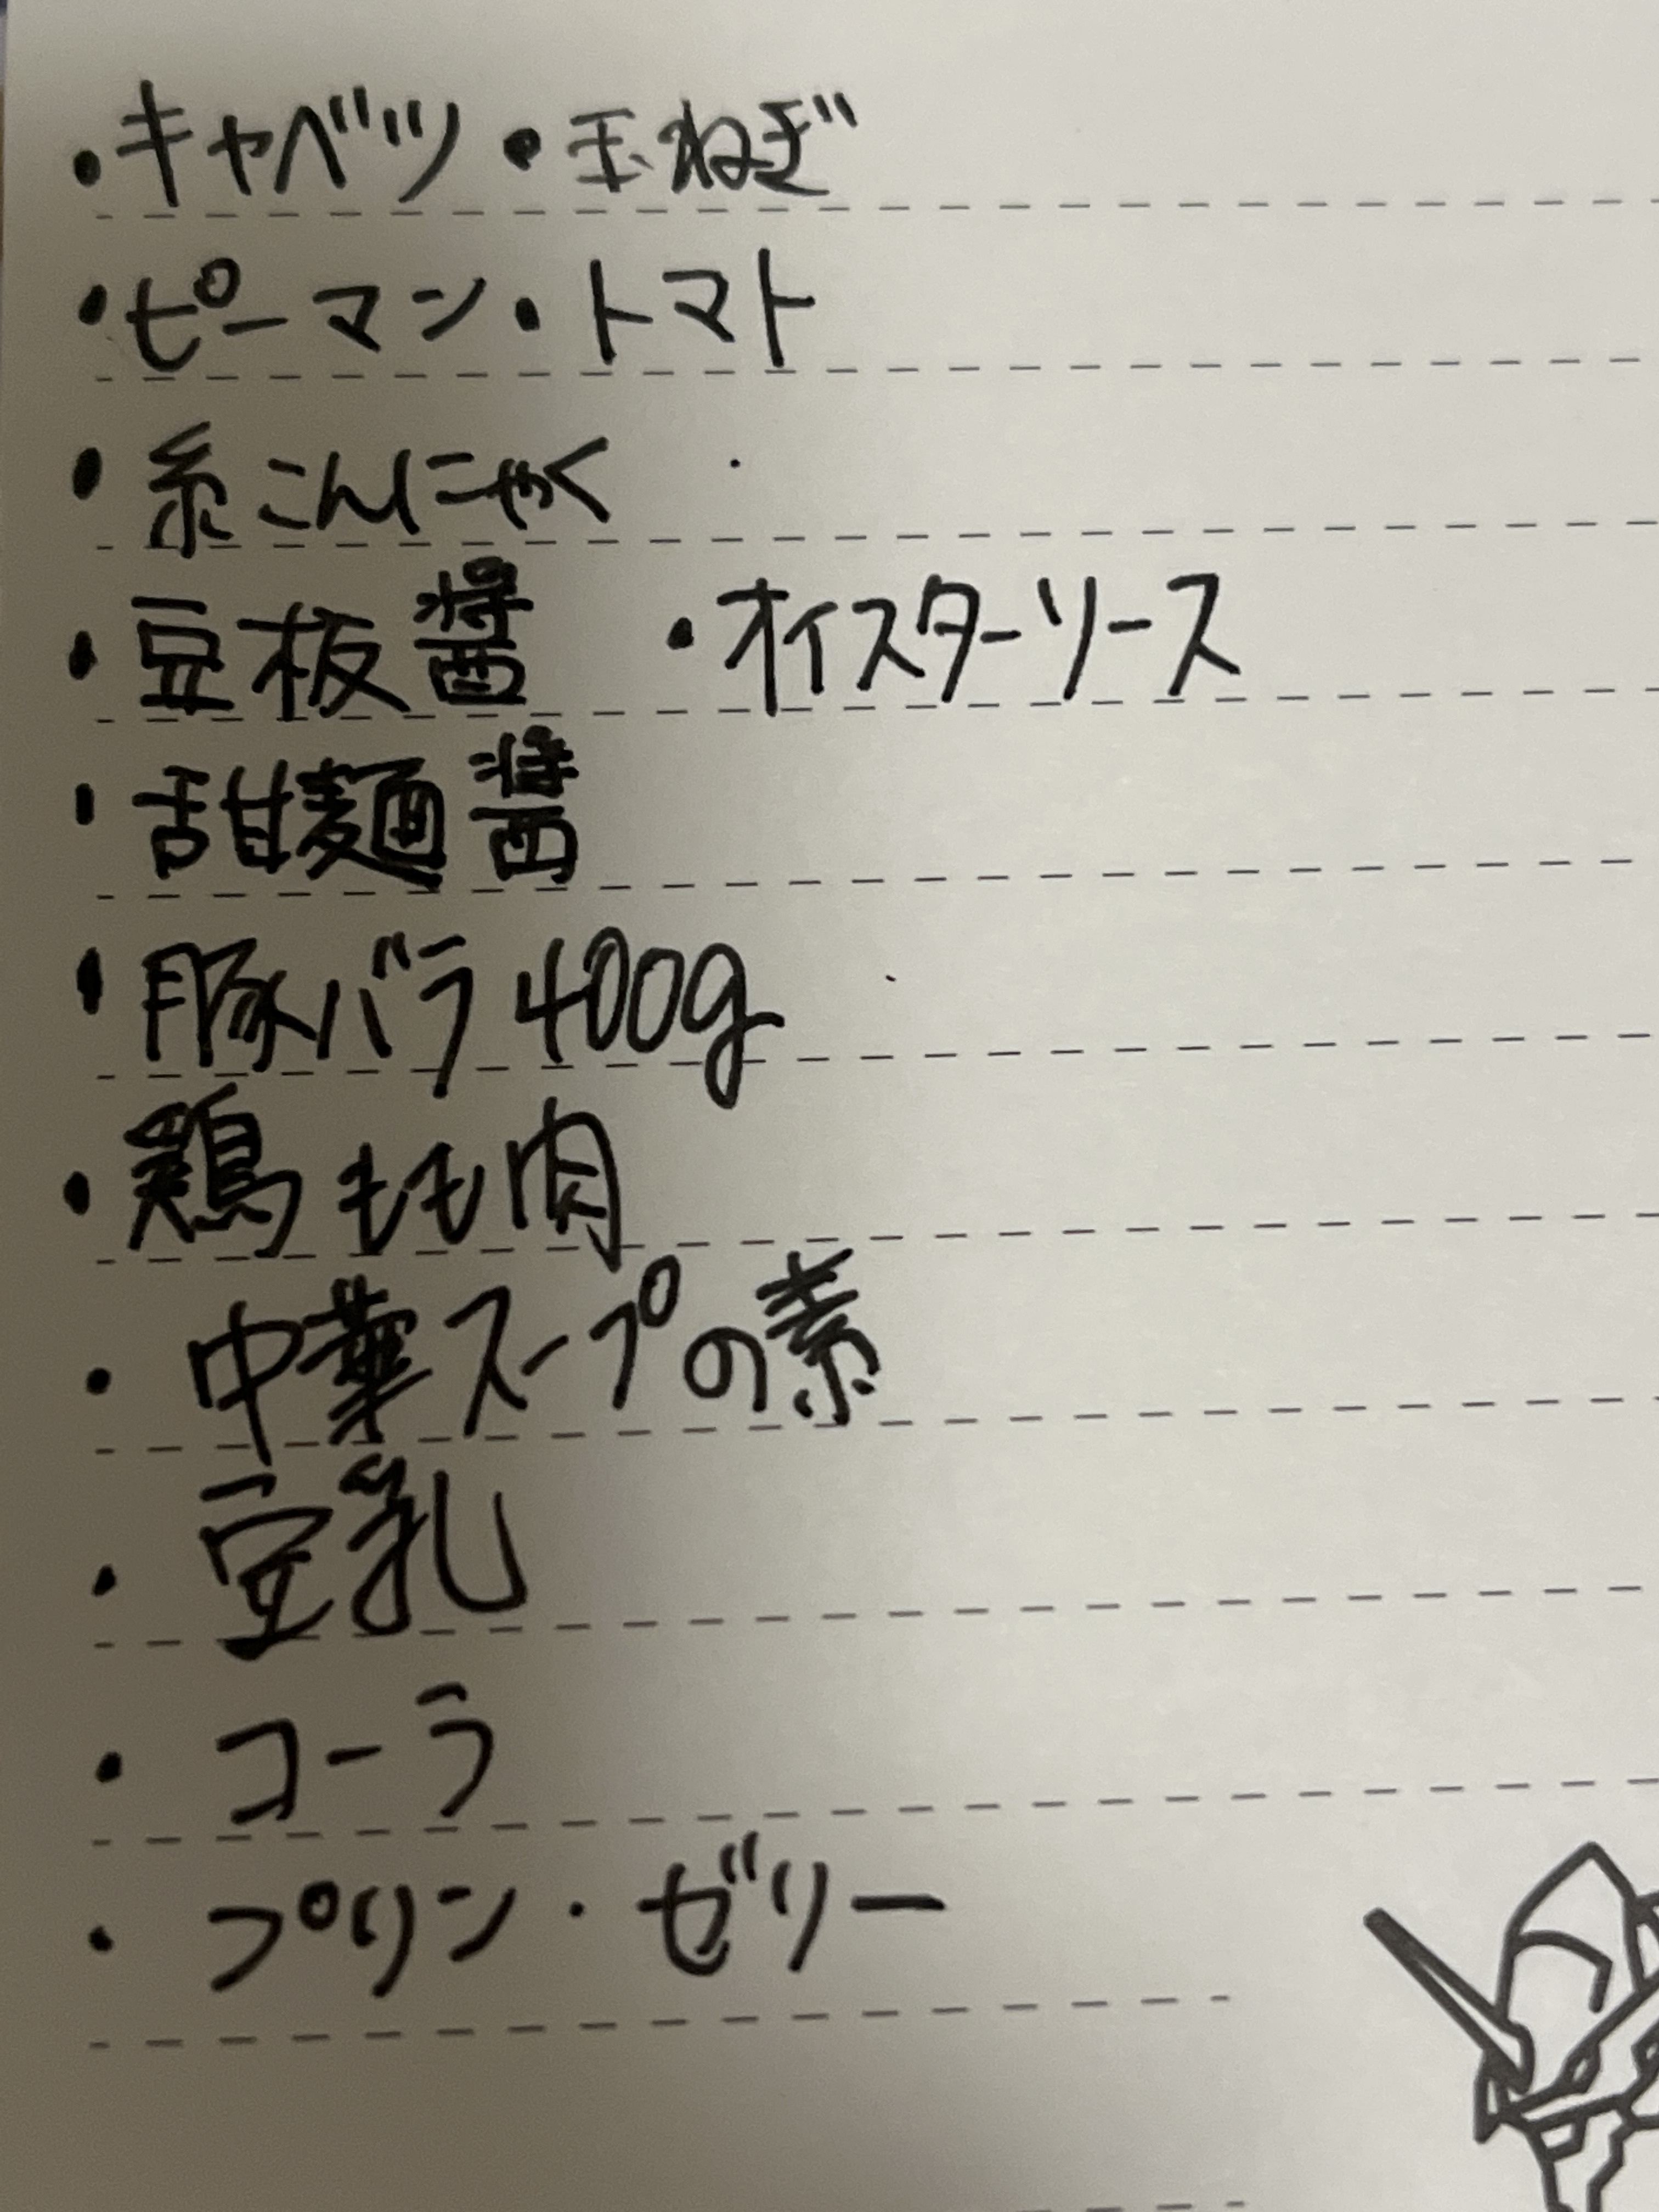 ・キャベツ・玉ねぎ
・ピーマン・トマト
・糸こんにゃく
・豆板醤 ・オイスターソース
・甜麺醤
・豚バラ400g
・鶏もも肉
・中華スープの素
・豆乳
・コーラ
・プリン・ゼリー